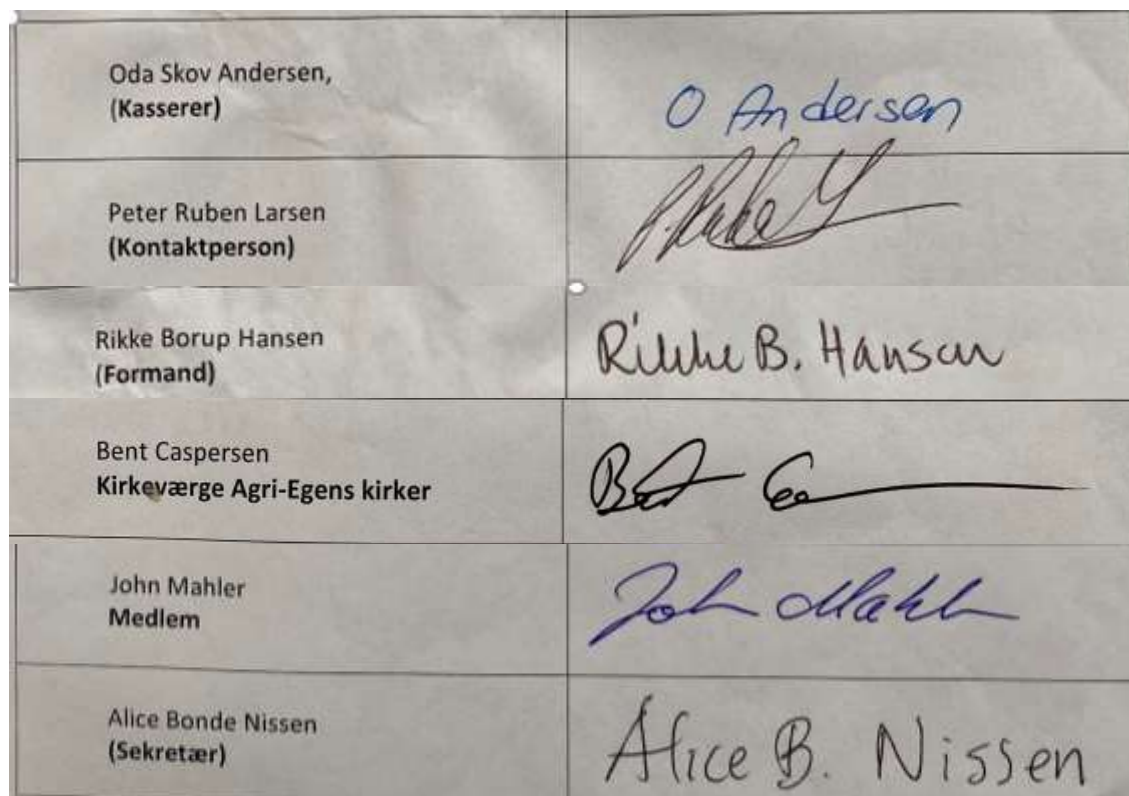 Oda Skov Andersen,
(Kasserer)
O Andersen
Peter Ruben Larsen
(Kontaktperson)
Rikke Borup Hansen
(Formand)
Rikke B. Hansen
Bent Caspersen
Kirkeværge Agri-Egens kirker
Bent
John Mahler
Medlem
John Mahler
Alice Bonde Nissen
(Sekretær)
Alice B. Nissen